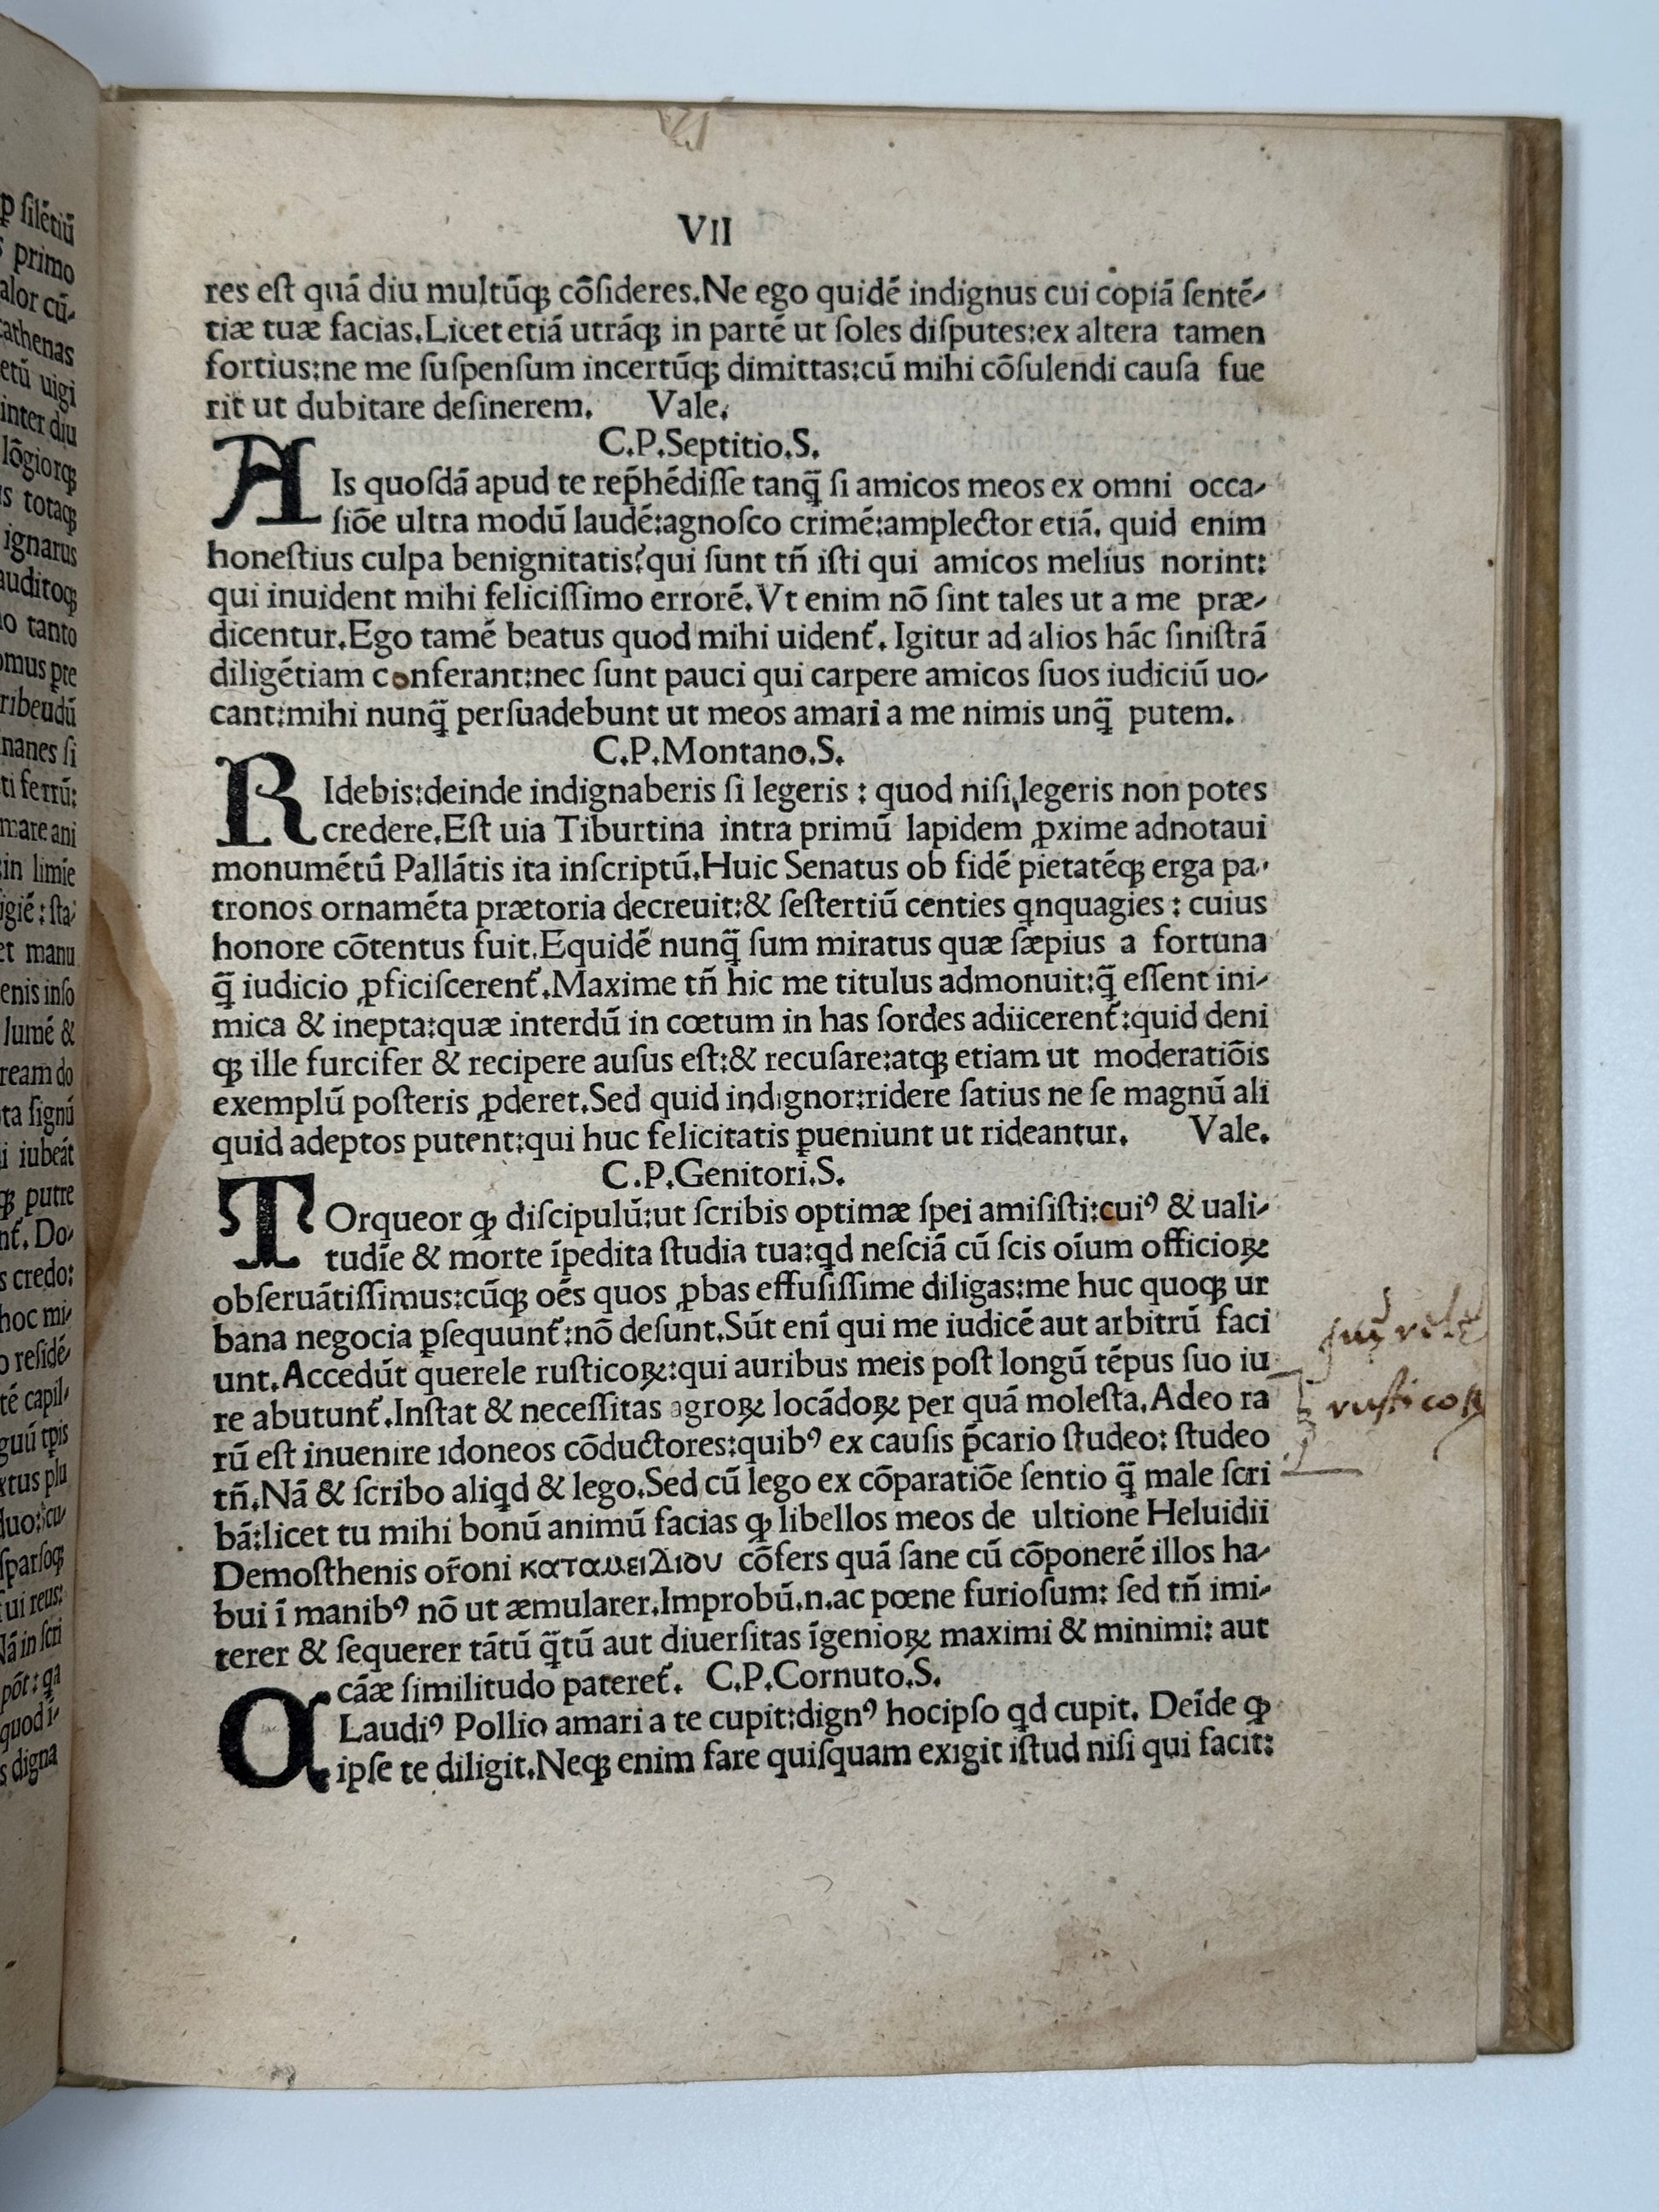 VII
res eſt quā diu multūq; cōſideres.Ne ego quidē indignus cui copiā ſentē-
tiæ tuæ facias.Licet etiā utrāq; in partē ut ſoles diſputes:ex altera tamen
fortius:ne me ſuſpenſum incertūq; dimittas:cū mihi cōſulendi cauſa fue
rit ut dubitare deſinerem. Vale.
C.P.Septitio.S.
AIs quoſdā apud te rep̄hēdiſſe tanq̄ ſi amicos meos ex omni occa-
ſiōe ultra modū laudē:agnoſco crimē:amplector etiā. quid enim
honeſtius culpa benignitatis?qui ſunt tn̄ iſti qui amicos melius norint:
qui inuident mihi feliciſſimo errorē.Vt enim nō ſint tales ut a me præ-
dicentur.Ego tamē beatus quod mihi uident᷑. Igitur ad alios hāc ſiniſtrā
diligētiam conferant:nec ſunt pauci qui carpere amicos ſuos iudiciū uo-
cant:mihi nunq̄ perſuadebunt ut meos amari a me nimis unq̄ putem.
C.P.Montano.S.
RIdebis:deinde indignaberis ſi legeris : quod niſi legeris non potes
credere.Eſt uia Tiburtina intra primū lapidem ꝓxime adnotaui
monumētū Pallātis ita inſcriptū.Huic Senatus ob fidē pietatēq; erga pa-
tronos ornamēta prætoria decreuit:& ſeſtertiū centies qnquagies : cuius
honore cōtentus fuit.Equidē nunq̄ ſum miratus quæ ſæpius a fortuna
q̄ iudicio ꝓficiſcerent᷑.Maxime tn̄ hic me titulus admonuit:q̄ eſſent ini-
mica & inepta:quæ interdū in cœtum in has ſordes adiicerent᷑:quid deni
q; ille furcifer & recipere auſus eſt:& recuſare:atq; etiam ut moderatiōis
exemplū poſteris ꝓderet.Sed quid indignor:ridere ſatius ne ſe magnū ali
quid adeptos putent:qui huc felicitatis ꝑueniunt ut rideantur. Vale.
C.P.Genitori.S.
TOrqueor ꝙ diſcipulū:ut ſcribis optimæ ſpei amiſiſti:cuiꝰ & uali-
tudīe & morte īpedita ſtudia tua:qd neſciā cū ſcis oīum officioꝝ
obſeruātiſſimus:cūq; oēs quos ꝓbas effuſiſſime diligas:me huc quoq; ur
bana negocia ꝑſequunt᷑:nō deſunt.Sūt enī qui me iudicē aut arbitrū faci
unt.Accedūt querele ruſticoꝝ:qui auribus meis poſt longū tēpus ſuo iu
re abutunt᷑.Inſtat & neceſſitas agroꝝ locādoꝝ per quā moleſta.Adeo ra
rū eſt inuenire idoneos cōductores:quibꝰ ex cauſis p̄cario ſtudeo: ſtudeo
tn̄.Nā & ſcribo aliqd & lego.Sed cū lego ex cōparatiōe ſentio q̄ male ſcri
bā:licet tu mihi bonū animū facias ꝙ libellos meos de ultione Heluidii
Demoſthenis or̄oni καταμειλιου cōfers quā ſane cū cōponerē illos ha-
bui ī manibꝰ nō ut æmularer.Improbū.n.ac pœne furioſum: ſed tn̄ imi-
terer & ſequerer tātū q̄tū aut diuerſitas īgenioꝝ maximi & minimi: aut
cāæ ſimilitudo pateret᷑. C.P.Cornuto.S.
CLaudiꝰ Pollio amari a te cupit:dignꝰ hocipſo qd cupit. Deīde ꝙ
ipſe te diligit.Neq; enim fare quiſquam exigit iſtud niſi qui facit:
ruſticoꝝ